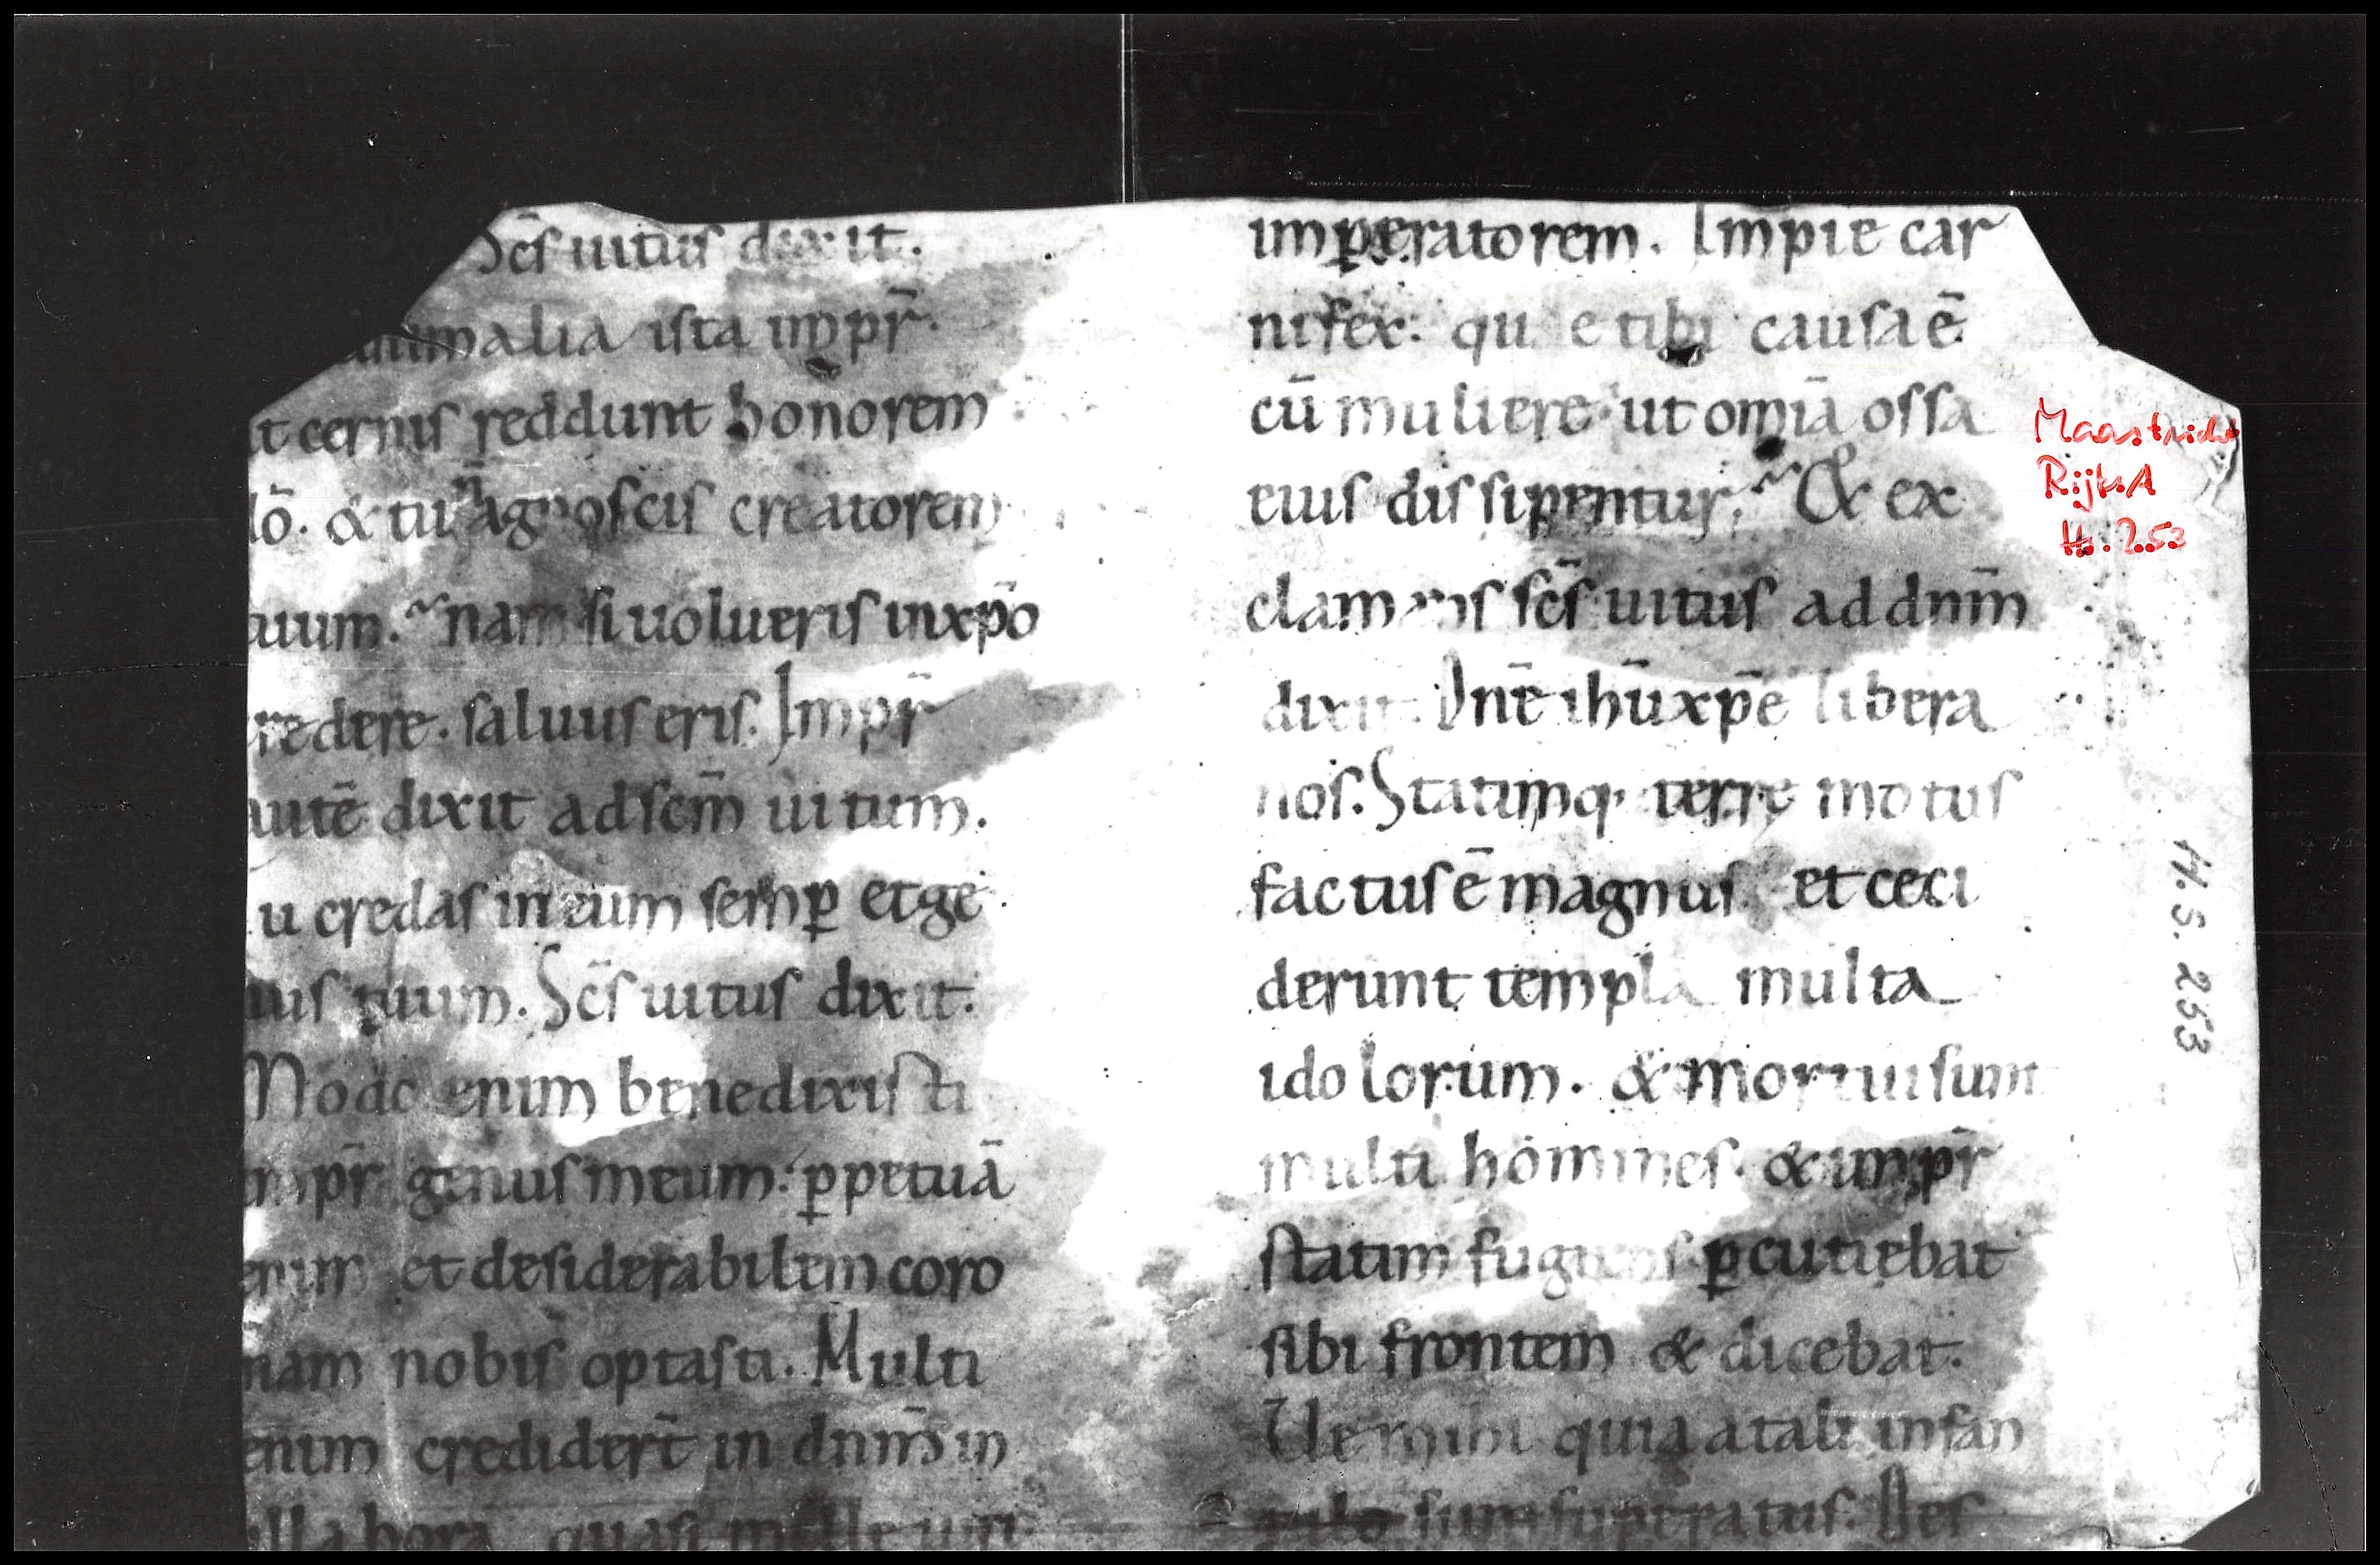 Scs̄ uitus dixit.
animalia ista impr̄.
ut cernis reddunt honorem
dō. & tu n̄ agnoscis creatorem
tuum. nam si uolueris in xp̄o
credere. saluus eris. Impr̄
autē dixit ad scm̄ uitum.
u credas in eum semꝑ et ge
nus tuum. Scs̄ uitus dixit.
Modo enim benedixisti
impr̄ genus meum. ꝑpetuā
enim et desiderabilem coro
nam nobis optasti. Multi
enim credidert̄ in dnm̄ in
illa hora quasi mille uiri
imperatorem. Impie car
nifex. que tibi causa ē
cū muliere ut omīa ossa
eius dissipentur. & ex
clamans scs̄ uitus ad dnm̄
dixit. Dnē ihū xpē libera
nos. Statimq; terre motus
factus ē magnus et ceci
derunt templa multa
idolorum. & mortui sunt
multi homines. & impr̄
statim fugiens ꝑcutiebat
sibi frontem & dicebat.
Ue mihi quia a tali infan
tulo sum superatus. Des
Maastricht
Rijks A
Hs. 253
H.S. 253